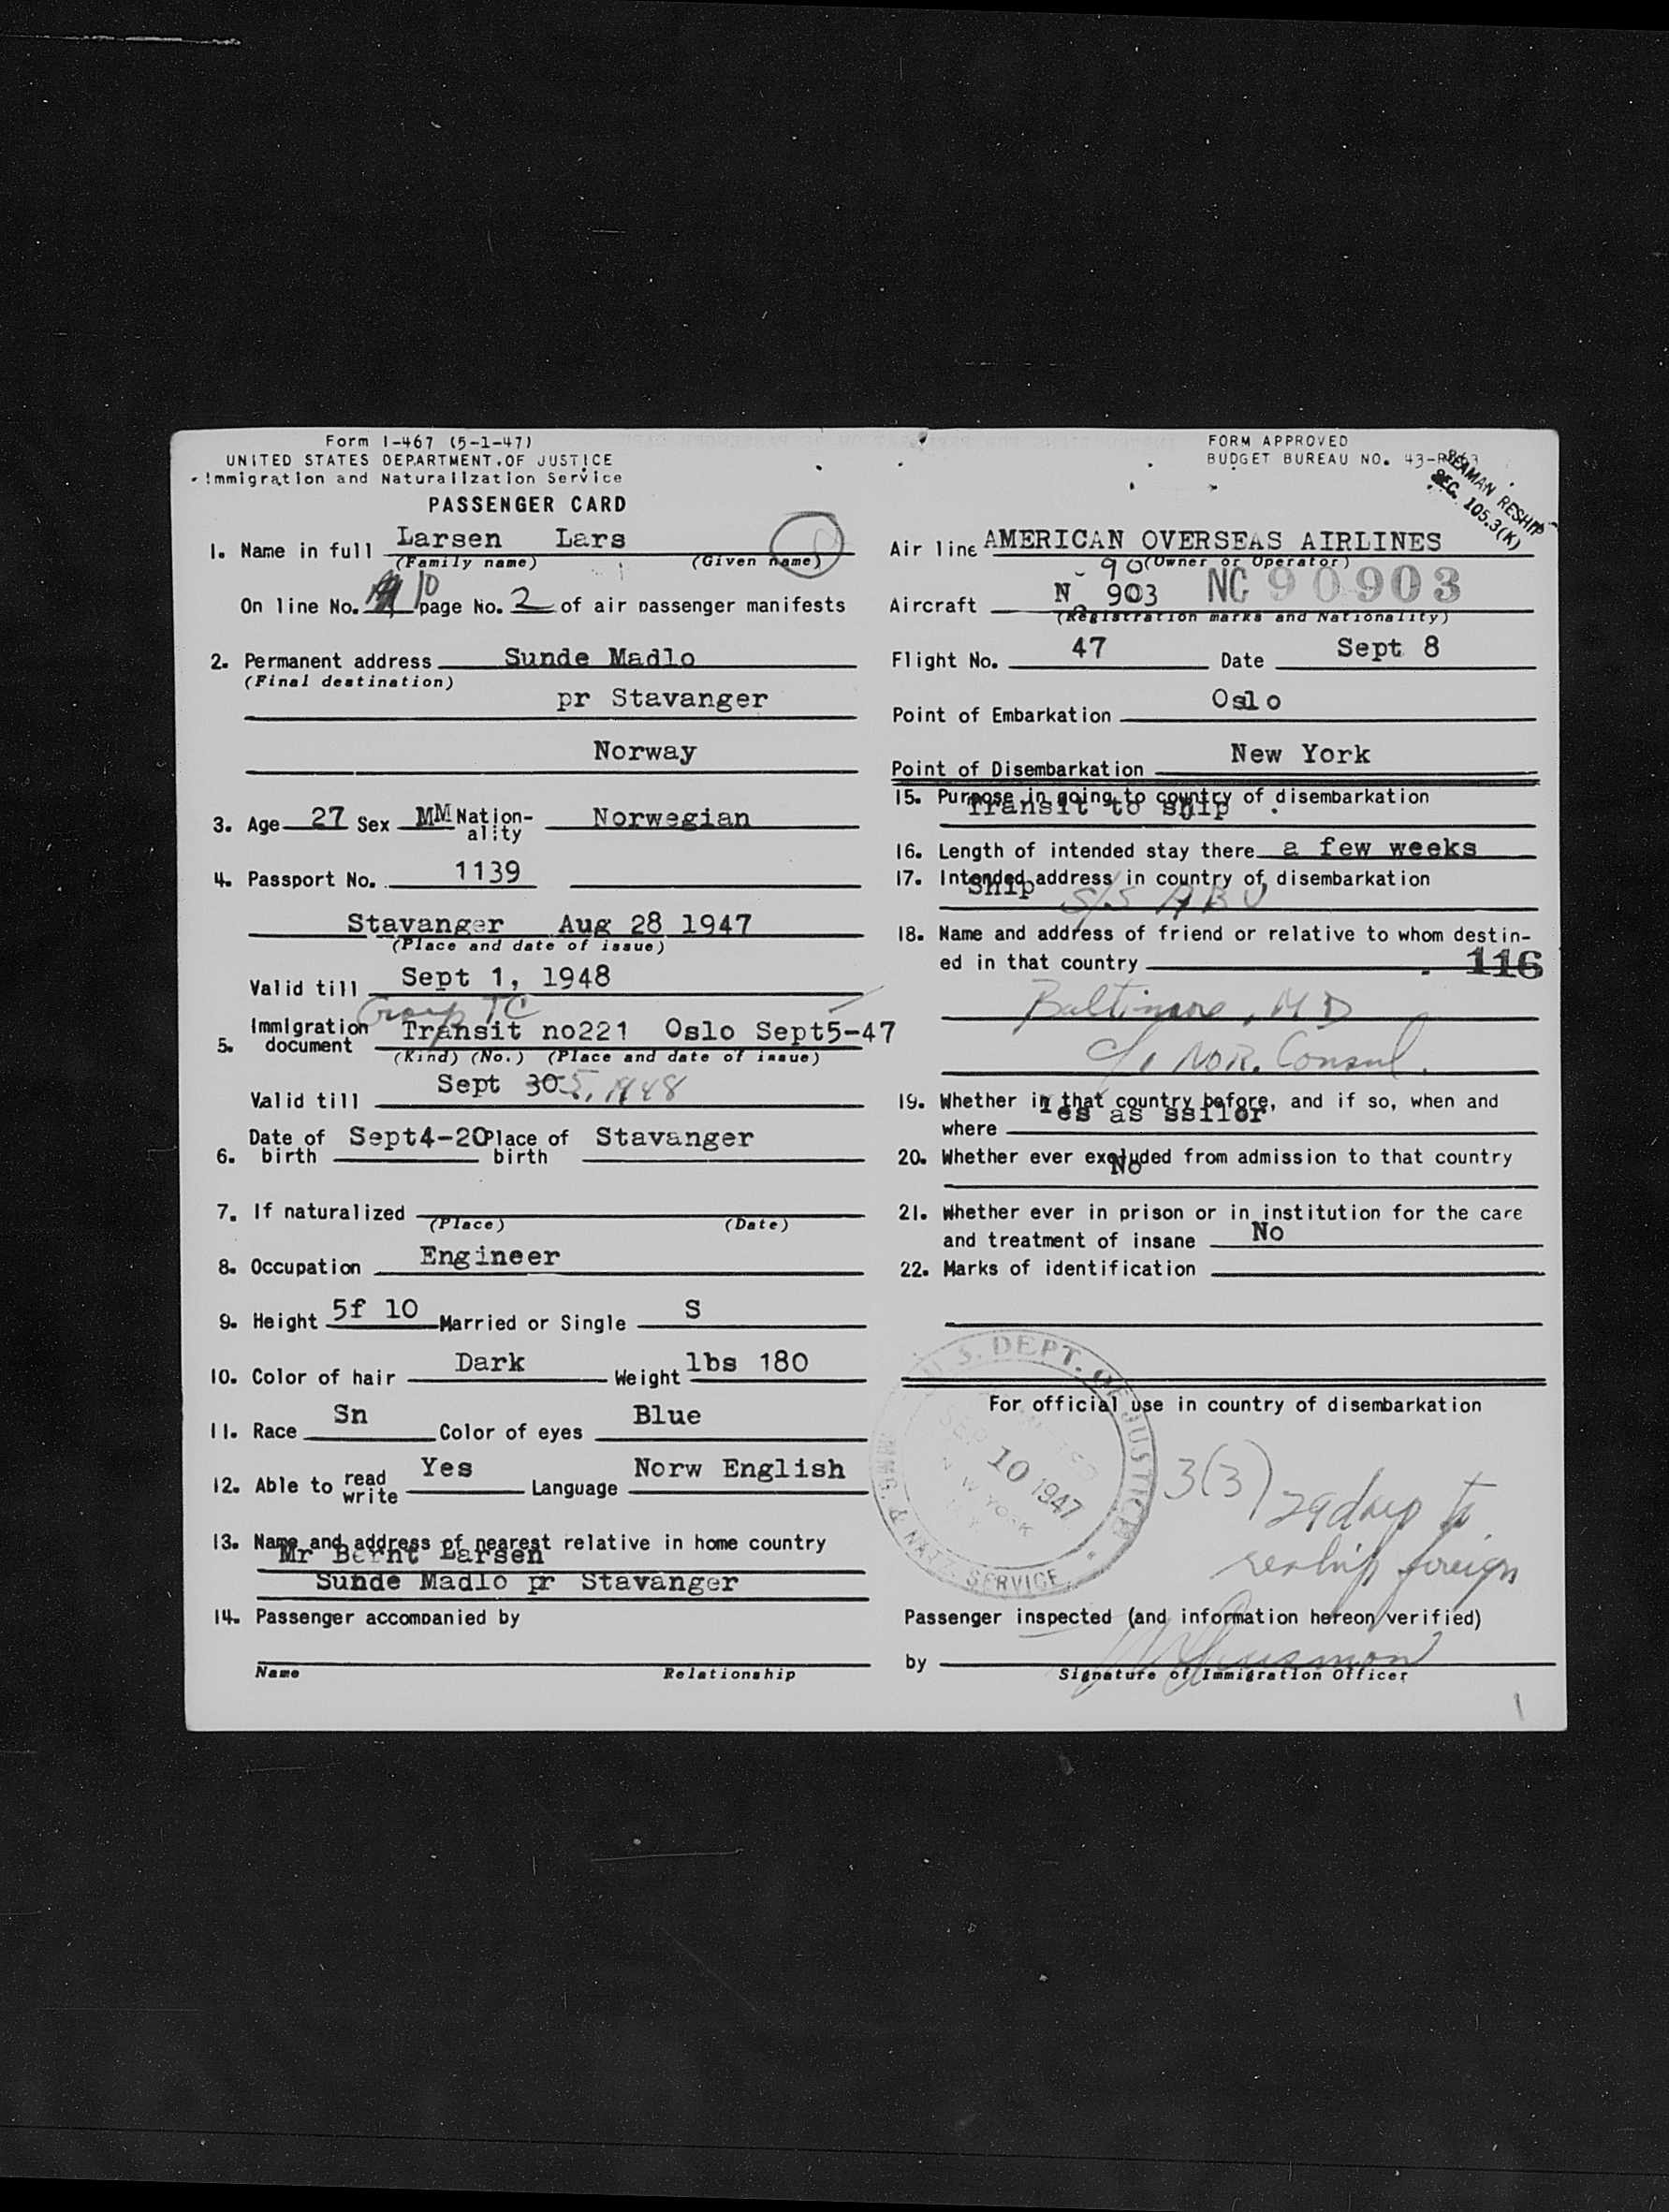 Form I-467 (5-1-47)
UNITED STATES DEPARTMENT OF JUSTICE
Immigration and Naturalization Service
PASSENGER CARD
1. Name in full Larsen Lars
(Family name) (Given name)
On line No. 10 page No. 2 of air passenger manifests
2. Permanent address Sunde Madlo
(Final destination)
pr Stavanger
Norway
3. Age 27 Sex MM Nation-ality Norwegian
4. Passport No. 1139
Stavanger Aug 28 1947
(Place and date of issue)
Valid till Sept 1, 1948
Group TC
5. Immigration document Transit no221 Oslo Sept5-47
(Kind) (No.) (Place and date of issue)
Valid till Sept 30 5, 1948
6. Date of birth Sept4-20 Place of birth Stavanger
7. If naturalized
(Place) (Date)
8. Occupation Engineer
9. Height 5f 10 Married or Single S
10. Color of hair Dark Weight lbs 180
11. Race Sn Color of eyes Blue
12. Able to read write Yes Language Norw English
13. Name and address of nearest relative in home country
Mr Bernt Larsen
Sunde Madlo pr Stavanger
14. Passenger accompanied by
Name Relationship
FORM APPROVED
BUDGET BUREAU NO. 43-
SEAMAN RESHIP
SEC. 105.3(K)
Air line AMERICAN OVERSEAS AIRLINES
(Owner or Operator)
90
Aircraft N 903 NC 90903
(Registration marks and Nationality)
Flight No. 47 Date Sept 8
Point of Embarkation Oslo
Point of Disembarkation New York
15. Purpose in going to country of disembarkation
Transit to ship .
16. Length of intended stay there a few weeks
17. Intended address in country of disembarkation
Ship S/S ABU
18. Name and address of friend or relative to whom destin-
ed in that country 116
Baltimore, MD
c/o NOR. Consul.
19. Whether in that country before, and if so, when and
where Yes as ssilor
20. Whether ever excluded from admission to that country
No
21. Whether ever in prison or in institution for the care
and treatment of insane No
22. Marks of identification
For official use in country of disembarkation
U.S. DEPT. OF JUSTICE
IMMG. & NATZ. SERVICE
SEP 10 1947
N W YORK
N.Y.
3(3) 29 days to
reship foreign
Passenger inspected (and information hereon verified)
by
Signature of Immigration Officer